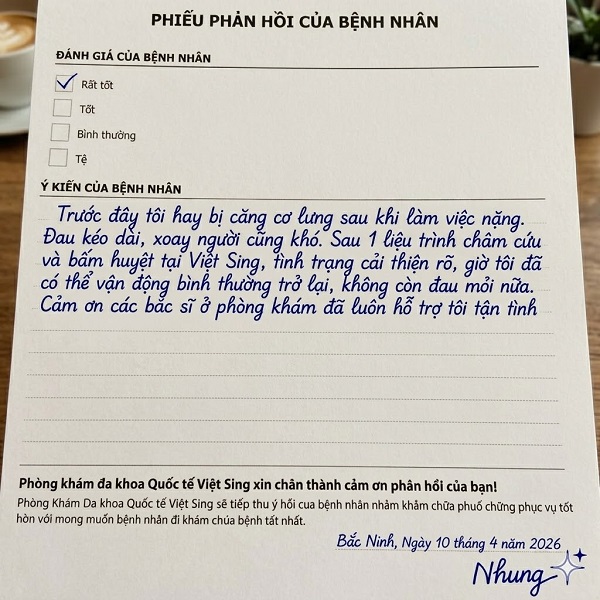 PHIẾU PHẢN HỒI CỦA BỆNH NHÂN
ĐÁNH GIÁ CỦA BỆNH NHÂN
Rất tốt
Tốt
Bình thường
Tệ
Ý KIẾN CỦA BỆNH NHÂN
Trước đây tôi hay bị căng cơ lưng sau khi làm việc nặng.
Đau kéo dài, xoay người cũng khó. Sau 1 liệu trình châm cứu
và bấm huyệt tại Việt Sing, tình trạng cải thiện rõ, giờ tôi đã
có thể vận động bình thường trở lại, không còn đau mỏi nữa.
Cảm ơn các bác sĩ ở phòng khám đã luôn hỗ trợ tôi tận tình
Phòng khám đa khoa Quốc tế Việt Sing xin chân thành cảm ơn phân hồi của bạn!
Phòng Khám Da khoa Quốc tế Việt Sing sẽ tiếp thu ý hồi cua bệnh nhân nhảm khảm chữa phuố chững phục vụ tốt
hòn với mong muốn bệnh nhân đi khám chúa bệnh tất nhất.
Bắc Ninh, Ngày 10 tháng 4 năm 2026
Nhung